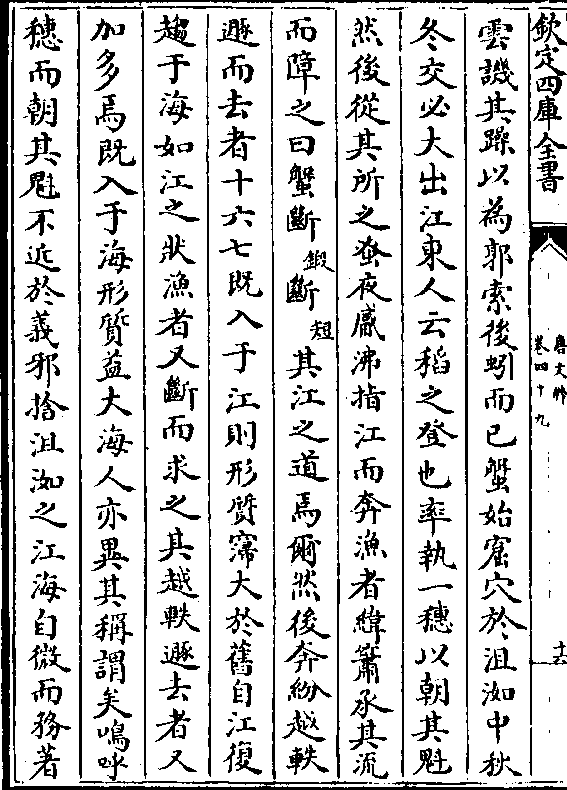 欽定四庫全書
唐文粹
卷四十九
十六
雲譏其躁以為郭索後蚓而已蟹始窟穴於沮洳中秋
冬交必大出江東人云稻之登也率執一穗以朝其魁
然後從其所之蚤夜觱沸指江而奔漁者緯簫承其流
而障之曰蟹斷鍛斷短其江之道焉爾然後奔紛越軼
遯而去者十六七既入于江則形質寖大於舊自江復
趨于海如江之狀漁者又斷而求之其越軼遯去者又
加多焉既入于海形質益大海人亦異其稱謂矣嗚呼
穗而朝其魁不近於義邪捨沮洳之江海自微而務著